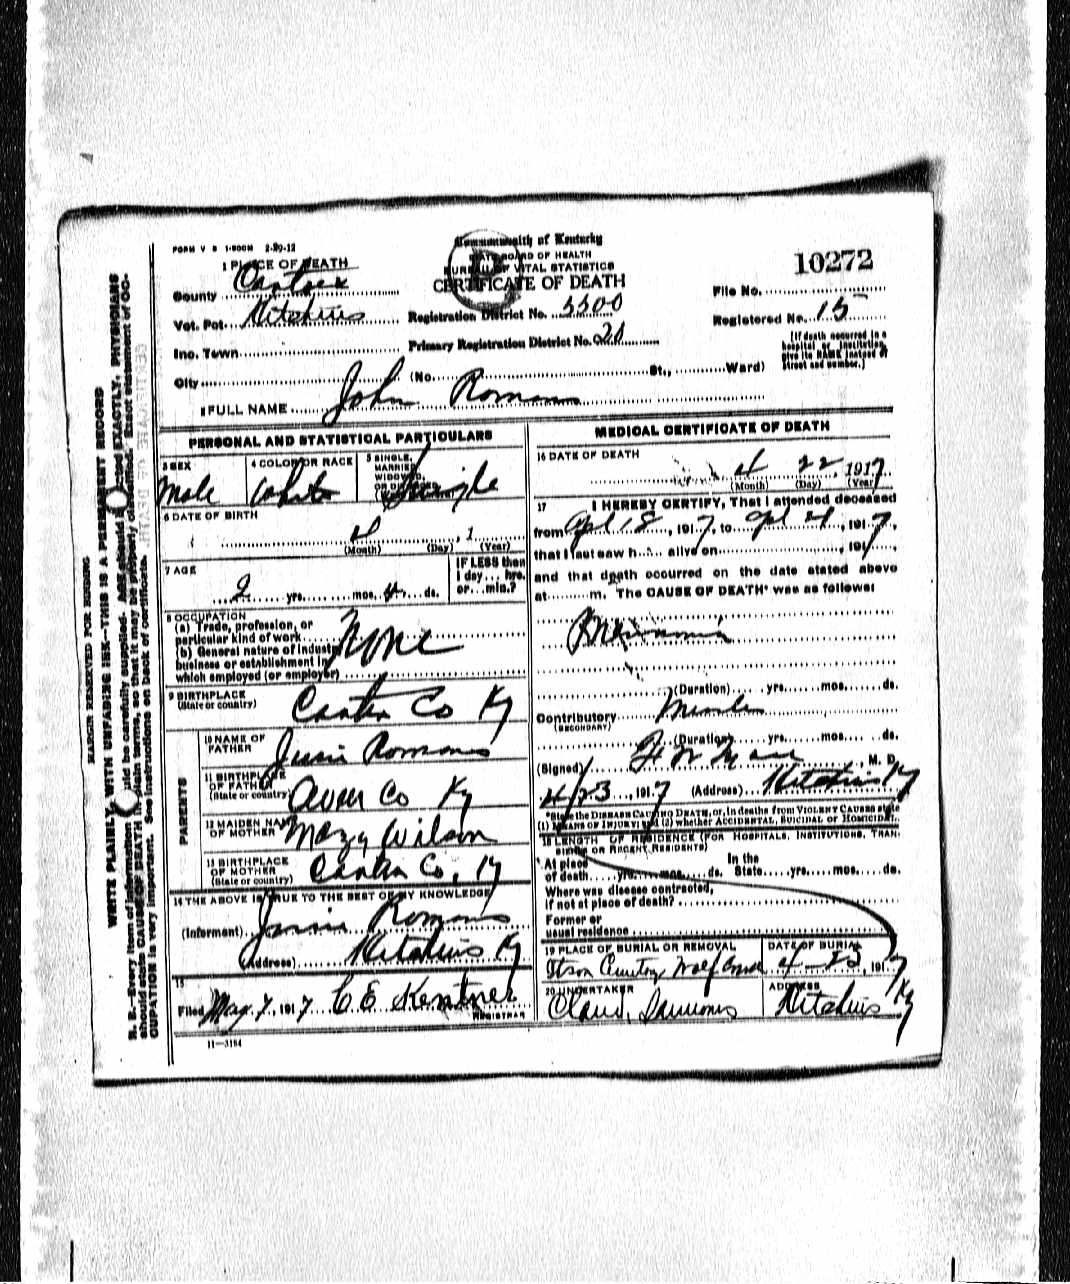 FORM V S 1-500M 2-29-12
Commonwealth of Kentucky
STATE BOARD OF HEALTH
BUREAU OF VITAL STATISTICS
CERTIFICATE OF DEATH
10272
1 PLACE OF DEATH
County
Vot. Pct. Hitchins
Registration District No. 5500
File No.
Registered No. 15
Ino. Town
Primary Registration District No.
[If death occurred in a
hospital or institution,
give its NAME instead of
street and number.]
City (No. St., Ward)
2 FULL NAME John Romans
PERSONAL AND STATISTICAL PARTICULARS
3 SEX Male
4 COLOR OR RACE White
5 SINGLE,
MARRIED
WIDOWED,
OR DIVORCED
Single
6 DATE OF BIRTH
, 1
(Month) (Day) (Year)
7 AGE
2 yrs. mos. 4 ds.
IF LESS then
1 day ... hrs.
or ... min.?
8 OCCUPATION
(a) Trade, profession, or
particular kind of work
(b) General nature of industry
business or establishment in
which employed (or employer)
None
9 BIRTHPLACE
(State or country) Carter Co Ky
PARENTS
10 NAME OF
FATHER Romans
11 BIRTHPLACE
OF FATHER
(State or country) Co Ky
12 MAIDEN NAME
OF MOTHER Wilson
13 BIRTHPLACE
OF MOTHER
(State or country) Carter Co, Ky
14 THE ABOVE IS TRUE TO THE BEST OF MY KNOWLEDGE
(Informant) Romans
(Address) Hitchins Ky
15
Filed May 7, 1917 C E
REGISTRAR
11-3184
MEDICAL CERTIFICATE OF DEATH
16 DATE OF DEATH
4 22 1917
(Month) (Day) (Year)
17 I HEREBY CERTIFY, That I attended deceased
from Apl 18, 1917, to Apl 21, 1917,
that I last saw h... alive on, 191,
and that death occurred on the date stated above
at m. The CAUSE OF DEATH* was as follows:
(Duration) yrs. mos. ds.
Contributory Measles
(SECONDARY)
(Duration) yrs. mos. ds.
(Signed) , M. D.
4/23, 1917 (Address) Hitchins Ky
*State the DISEASE CAUSING DEATH, or, in deaths from VIOLENT CAUSES state
(1) MEANS OF INJURY; and (2) whether ACCIDENTAL, SUICIDAL or HOMICIDAL.
18 LENGTH OF RESIDENCE (FOR HOSPITALS, INSTITUTIONS, TRAN-
SIENTS OR RECENT RESIDENTS)
At place
of death yrs. mos. ds.
In the
State yrs. mos. ds.
Where was disease contracted,
if not at place of death?
Former or
usual residence
19 PLACE OF BURIAL OR REMOVAL
DATE OF BURIAL
4-23, 1917
20 UNDERTAKER
ADDRESS
Hitchins Ky
MARGIN RESERVED FOR BINDING
WRITE PLAINLY, WITH UNFADING INK—THIS IS A PERMANENT RECORD
N. B.—Every item of information should be carefully supplied. AGE should be stated EXACTLY. PHYSICIANS
should state CAUSE OF DEATH in plain terms, so that it may be properly classified. Exact statement of OC-
CUPATION is very important. See instructions on back of certificate.